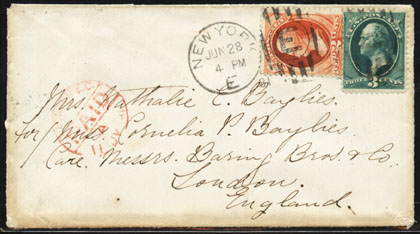 NEW YORK
JUN 28
4 PM
E
E
THREE CENTS
PAID
11 JY
Mrs. Nathalie E. Baylies
for Mrs. Cornelia P. Baylies
Care Messrs. Baring Bros. & Co.
London.
England.